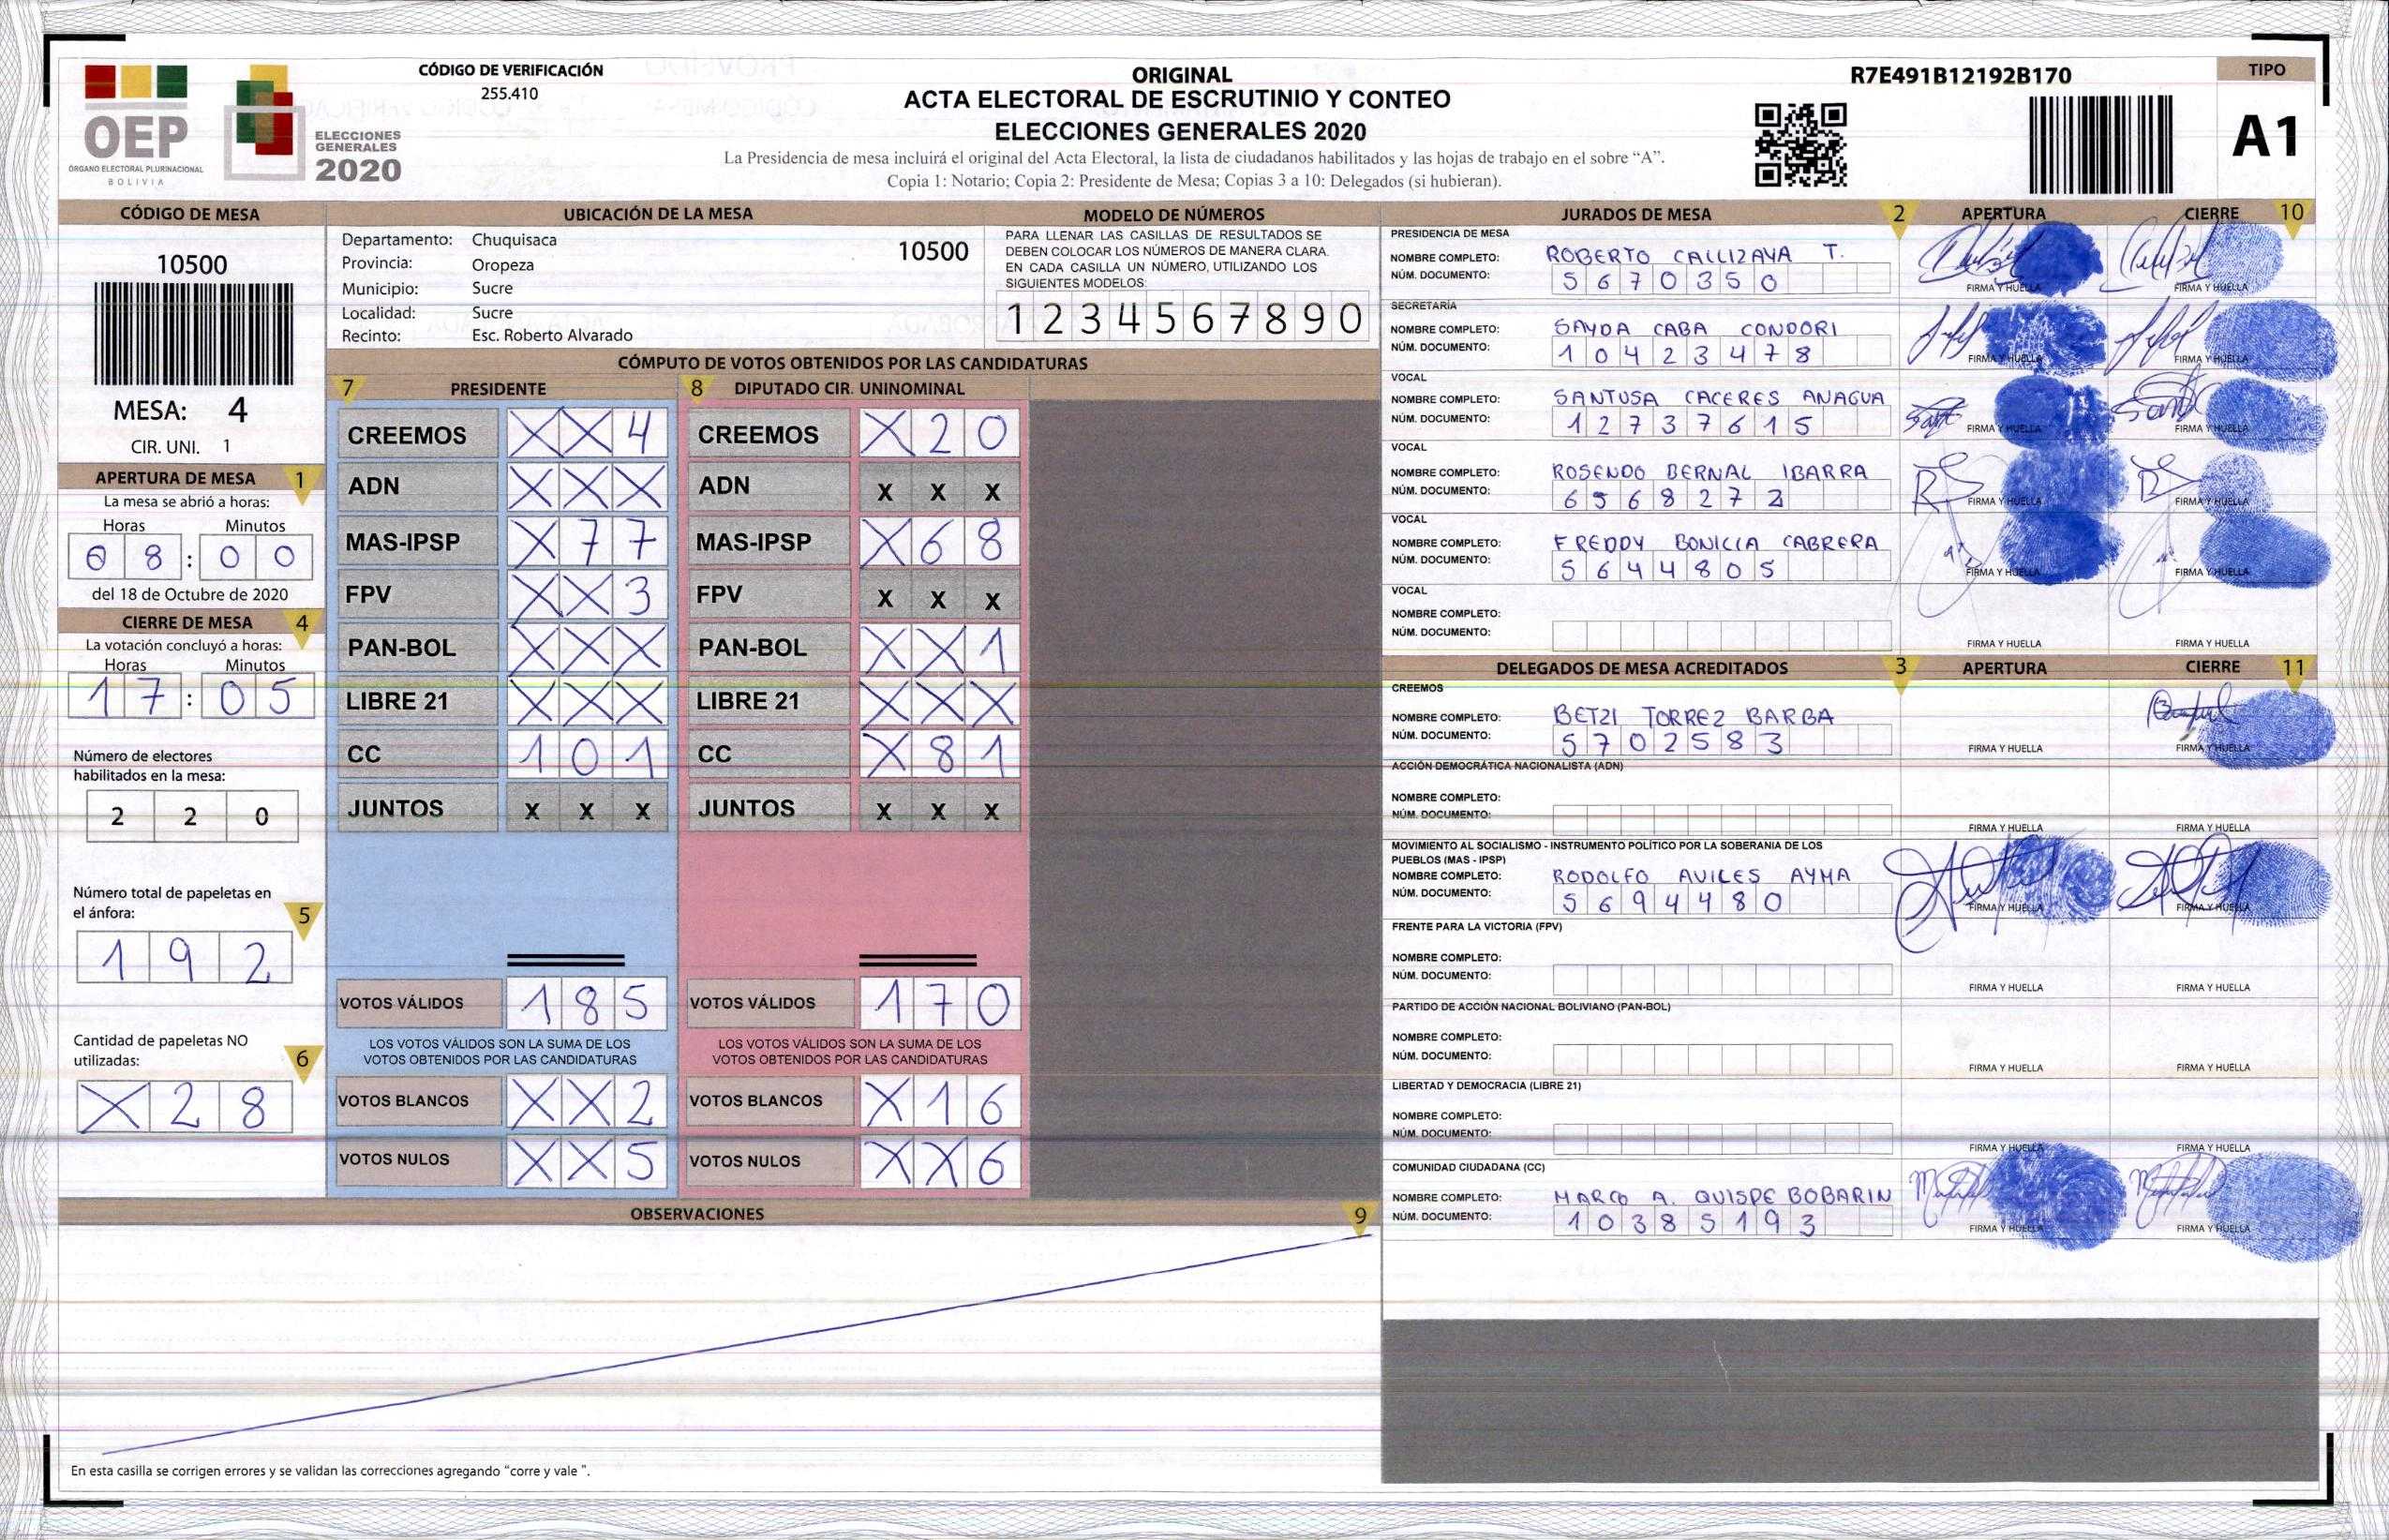 OEP
ÓRGANO ELECTORAL PLURINACIONAL
BOLIVIA
ELECCIONES
GENERALES
2020
CÓDIGO DE VERIFICACIÓN
255.410
ORIGINAL
ACTA ELECTORAL DE ESCRUTINIO Y CONTEO
ELECCIONES GENERALES 2020
La Presidencia de mesa incluirá el original del Acta Electoral, la lista de ciudadanos habilitados y las hojas de trabajo en el sobre “A”.
Copia 1: Notario; Copia 2: Presidente de Mesa; Copias 3 a 10: Delegados (si hubieran).
R7E491B12192B170
TIPO
A1
CÓDIGO DE MESA
10500
MESA: 4
CIR. UNI. 1
APERTURA DE MESA 1
La mesa se abrió a horas:
Horas Minutos
08:00
del 18 de Octubre de 2020
CIERRE DE MESA 4
La votación concluyó a horas:
Horas Minutos
17:05
Número de electores
habilitados en la mesa:
2 2 0
Número total de papeletas en
el ánfora: 5
1 9 2
Cantidad de papeletas NO
utilizadas: 6
X 2 8
UBICACIÓN DE LA MESA
Departamento: Chuquisaca 10500
Provincia: Oropeza
Municipio: Sucre
Localidad: Sucre
Recinto: Esc. Roberto Alvarado
MODELO DE NÚMEROS
PARA LLENAR LAS CASILLAS DE RESULTADOS SE
DEBEN COLOCAR LOS NÚMEROS DE MANERA CLARA.
EN CADA CASILLA UN NÚMERO, UTILIZANDO LOS
SIGUIENTES MODELOS:
1 2 3 4 5 6 7 8 9 0
CÓMPUTO DE VOTOS OBTENIDOS POR LAS CANDIDATURAS
7 PRESIDENTE 8 DIPUTADO CIR. UNINOMINAL
CREEMOS X X 4 CREEMOS X 2 0
ADN X X X ADN X X X
MAS-IPSP X 7 7 MAS-IPSP X 6 8
FPV X X 3 FPV X X X
PAN-BOL X X X PAN-BOL X X 1
LIBRE 21 X X X LIBRE 21 X X X
CC 1 0 1 CC X 8 1
JUNTOS X X X JUNTOS X X X
VOTOS VÁLIDOS 1 8 5 VOTOS VÁLIDOS 1 7 0
LOS VOTOS VÁLIDOS SON LA SUMA DE LOS LOS VOTOS VÁLIDOS SON LA SUMA DE LOS
VOTOS OBTENIDOS POR LAS CANDIDATURAS VOTOS OBTENIDOS POR LAS CANDIDATURAS
VOTOS BLANCOS X X 2 VOTOS BLANCOS X 1 6
VOTOS NULOS X X 5 VOTOS NULOS X X 6
OBSERVACIONES 9
En esta casilla se corrigen errores y se validan las correcciones agregando “corre y vale ”.
JURADOS DE MESA 2 APERTURA CIERRE 10
PRESIDENCIA DE MESA
NOMBRE COMPLETO: ROBERTO CALLIZAYA T.
NÚM. DOCUMENTO: 5670350
FIRMA Y HUELLA FIRMA Y HUELLA
SECRETARÍA
NOMBRE COMPLETO: SAYDA CABA CONDORI
NÚM. DOCUMENTO: 10423478
FIRMA Y HUELLA FIRMA Y HUELLA
VOCAL
NOMBRE COMPLETO: SANTUSA CACERES ANAGUA
NÚM. DOCUMENTO: 12737615
FIRMA Y HUELLA FIRMA Y HUELLA
VOCAL
NOMBRE COMPLETO: ROSENDO BERNAL IBARRA
NÚM. DOCUMENTO: 6568272
FIRMA Y HUELLA FIRMA Y HUELLA
VOCAL
NOMBRE COMPLETO: FREDDY BONILLA CABRERA
NÚM. DOCUMENTO: 5644805
FIRMA Y HUELLA FIRMA Y HUELLA
VOCAL
NOMBRE COMPLETO:
NÚM. DOCUMENTO:
FIRMA Y HUELLA FIRMA Y HUELLA
DELEGADOS DE MESA ACREDITADOS 3 APERTURA CIERRE 11
CREEMOS
NOMBRE COMPLETO: BETZI TORREZ BARBA
NÚM. DOCUMENTO: 5702583
FIRMA Y HUELLA FIRMA Y HUELLA
ACCIÓN DEMOCRÁTICA NACIONALISTA (ADN)
NOMBRE COMPLETO:
NÚM. DOCUMENTO:
FIRMA Y HUELLA FIRMA Y HUELLA
MOVIMIENTO AL SOCIALISMO - INSTRUMENTO POLÍTICO POR LA SOBERANIA DE LOS
PUEBLOS (MAS - IPSP)
NOMBRE COMPLETO: RODOLFO AVILES AYMA
NÚM. DOCUMENTO: 5694480
FIRMA Y HUELLA FIRMA Y HUELLA
FRENTE PARA LA VICTORIA (FPV)
NOMBRE COMPLETO:
NÚM. DOCUMENTO:
FIRMA Y HUELLA FIRMA Y HUELLA
PARTIDO DE ACCIÓN NACIONAL BOLIVIANO (PAN-BOL)
NOMBRE COMPLETO:
NÚM. DOCUMENTO:
FIRMA Y HUELLA FIRMA Y HUELLA
LIBERTAD Y DEMOCRACIA (LIBRE 21)
NOMBRE COMPLETO:
NÚM. DOCUMENTO:
FIRMA Y HUELLA FIRMA Y HUELLA
COMUNIDAD CIUDADANA (CC)
NOMBRE COMPLETO: MARCO A. QUISPE BOBARIN
NÚM. DOCUMENTO: 10385193
FIRMA Y HUELLA FIRMA Y HUELLA